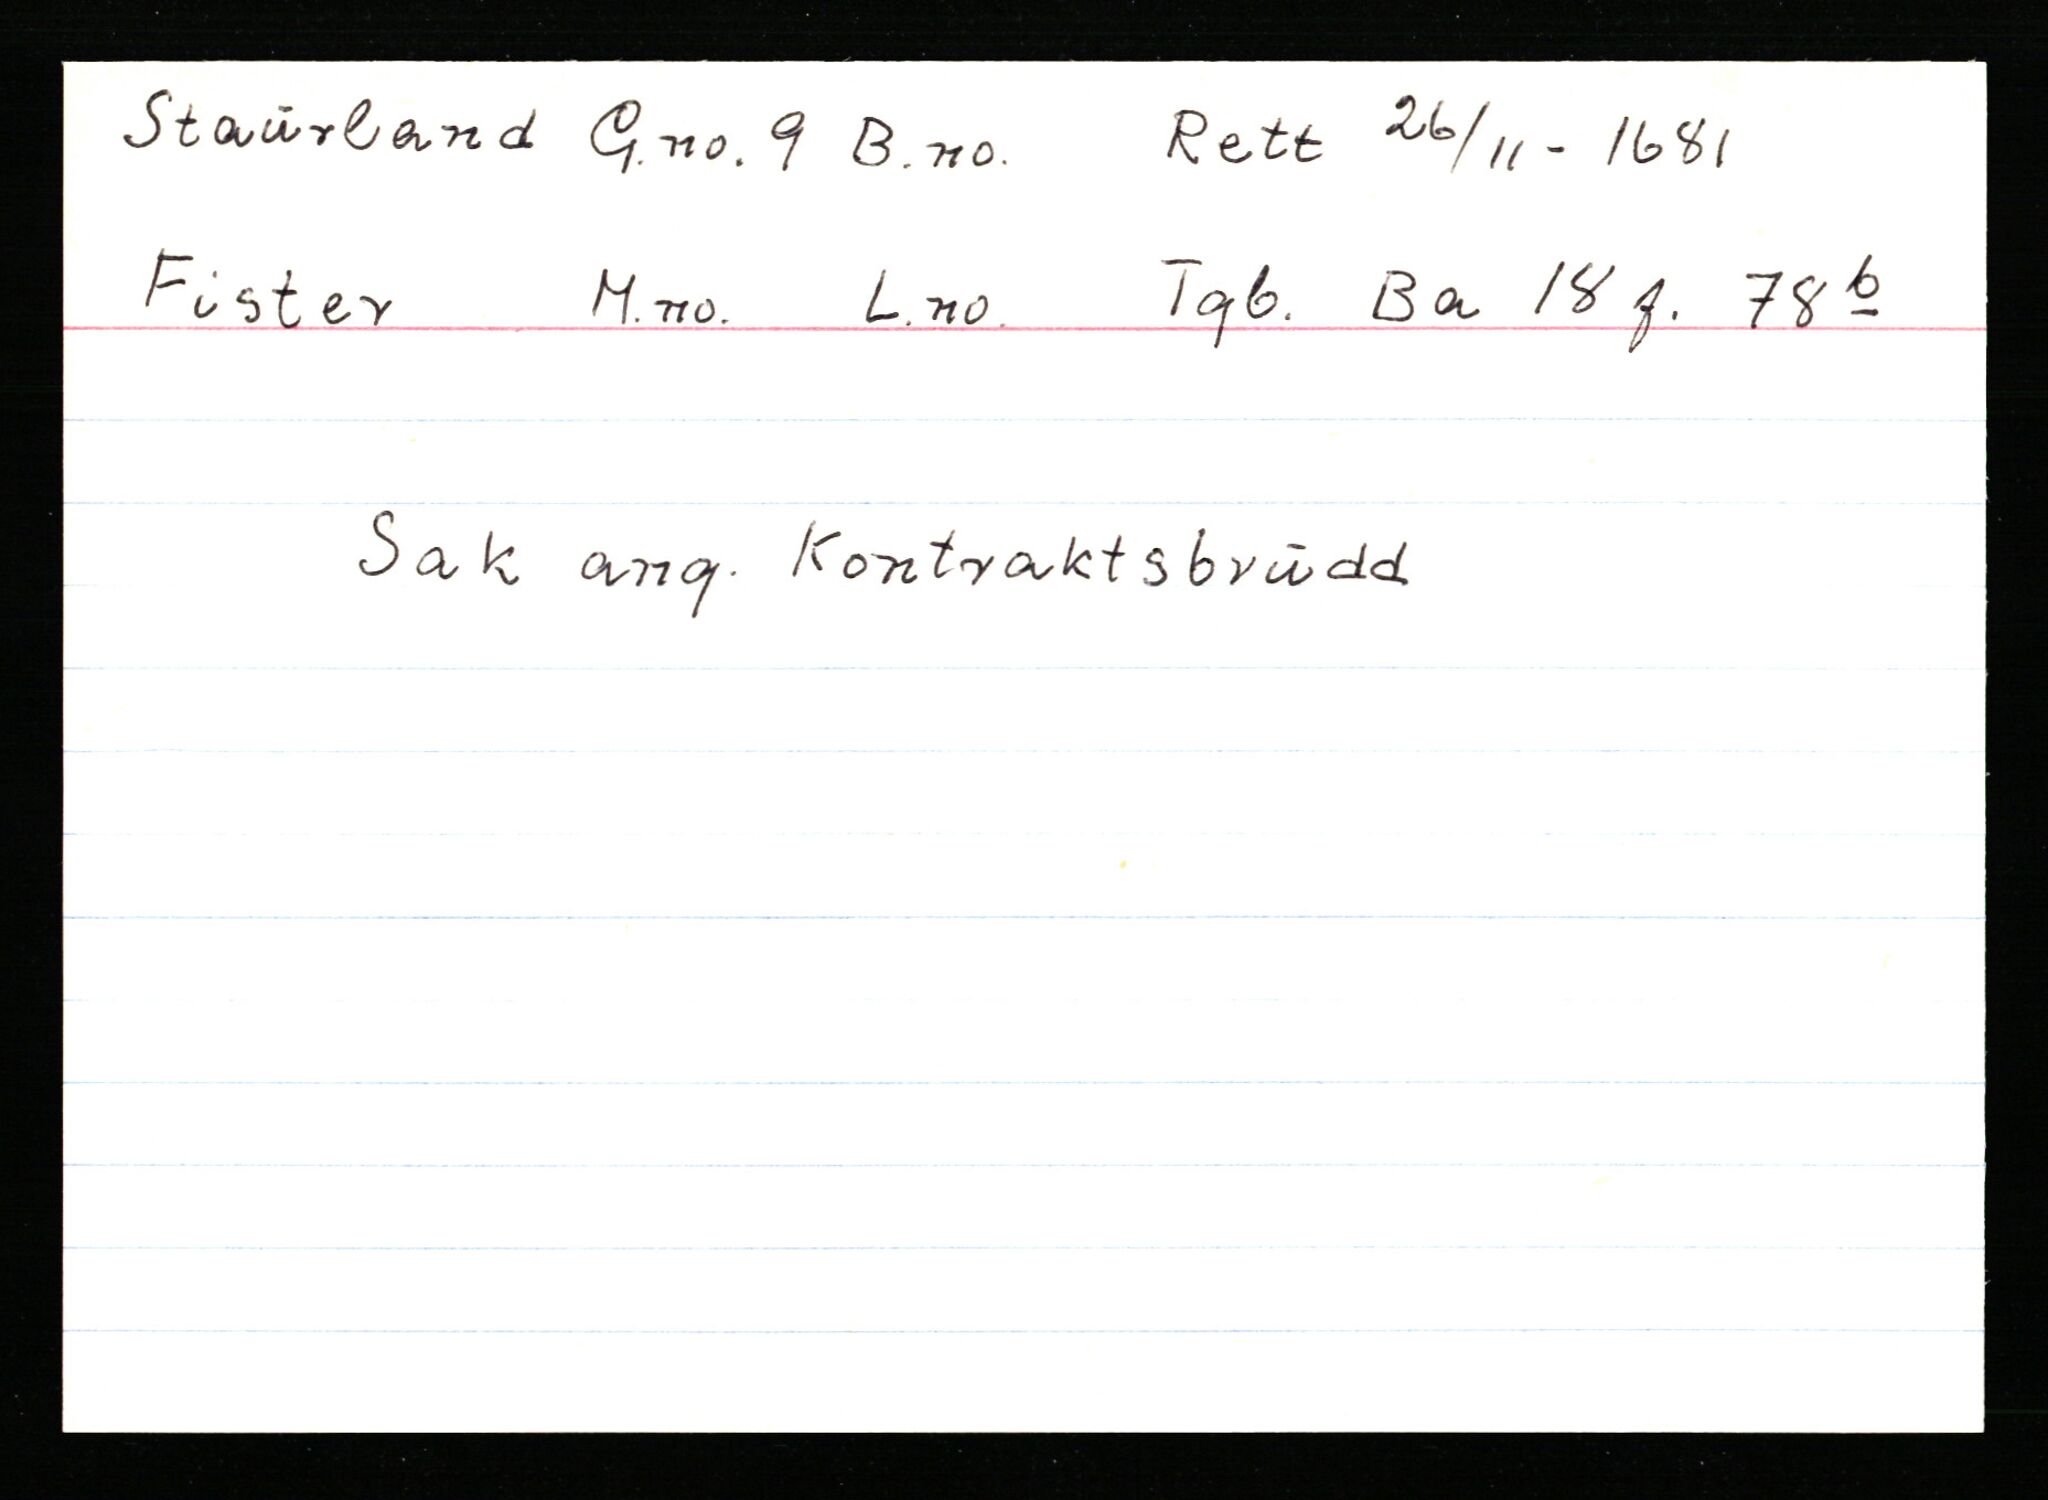 Staūrland G.no. 9 B.no. Rett 26/11 - 1681
Fister M.no. L.no. Tgb. Ba 18 f. 78b
Sak ang. Kontraktsbrūdd